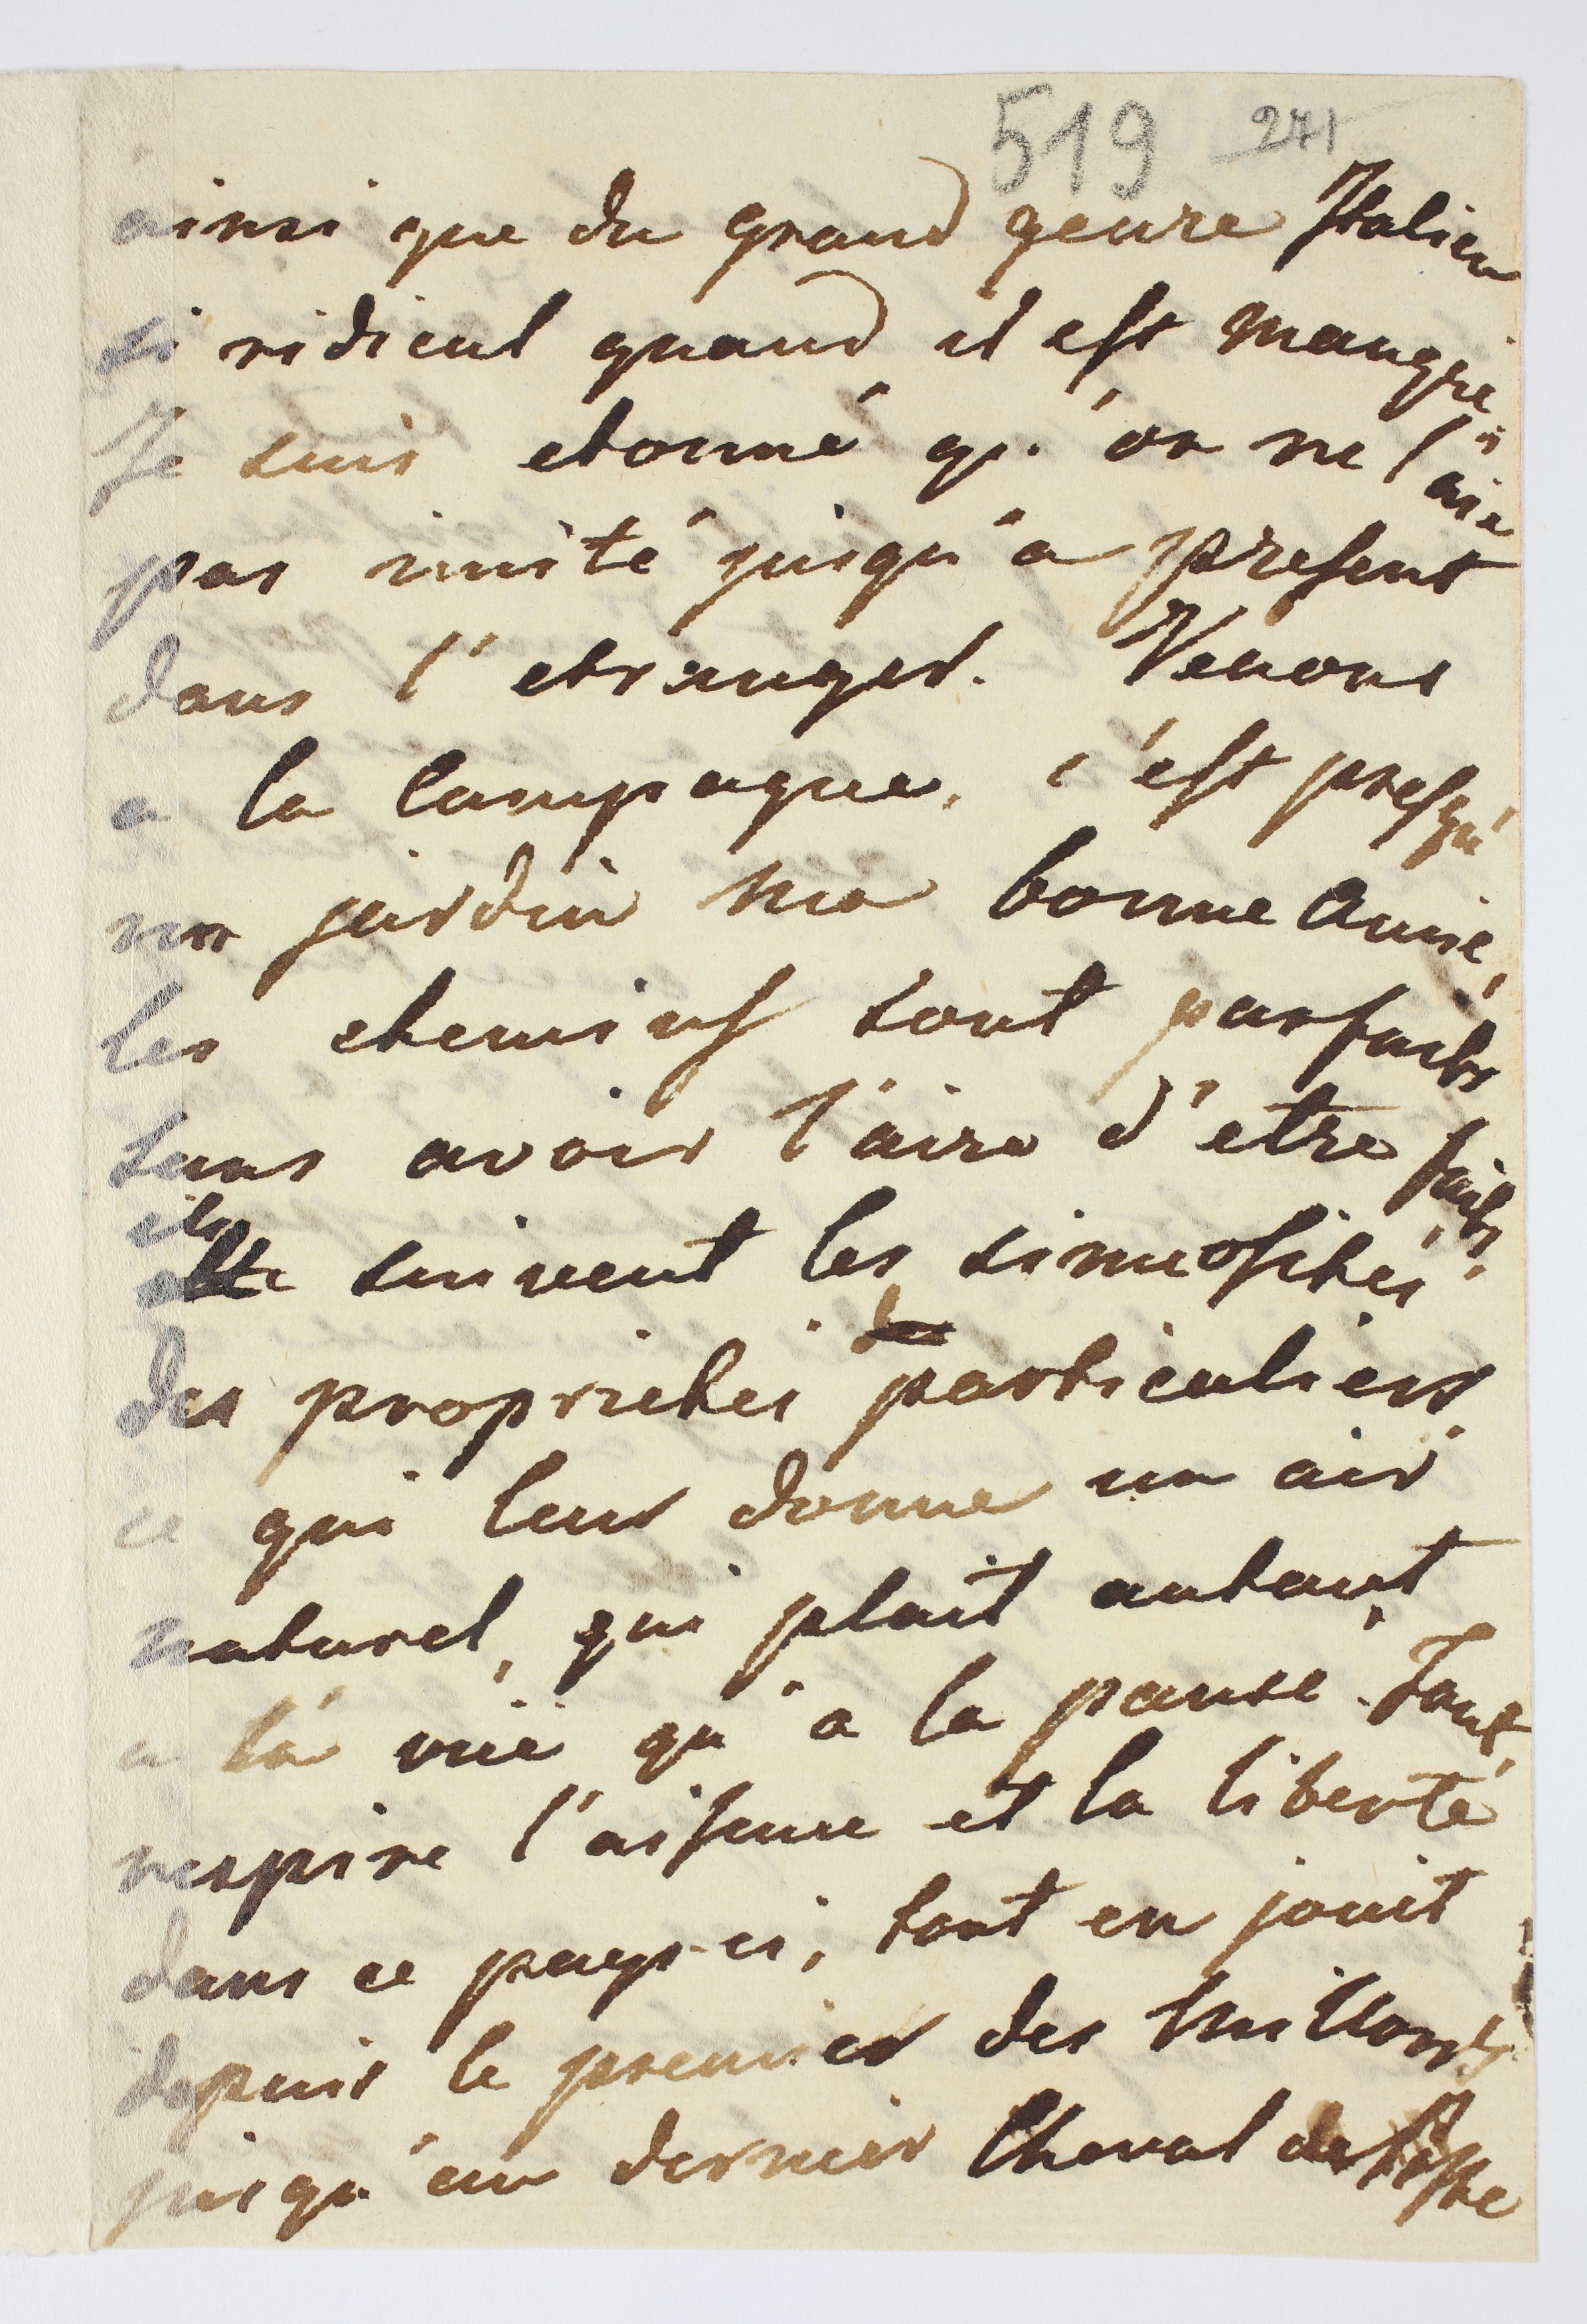 519 271
ainsi que du grand genre Italien
si ridicul quand il est manqué.
Je suis etonné qu'on ne l'aie
pas imité jusqu'a present
dans l'etranger. Venons
a la Campagne, c'est presqu'
un jardin ma bonne Amie,
les chemins sont parfaits
sans avoir l'aire d'etre faits,
ils suivent les sinuosités
des proprietes particuliers,
ce qui leur donne un air
naturel, qui plait autant
a la vüe qu'a la panse. Tout
respire l'aisence et la liberté
dans ce pays-ci, tout en jouit
depuis le premier des Millords
jusqu'au dernier Cheval de Poste